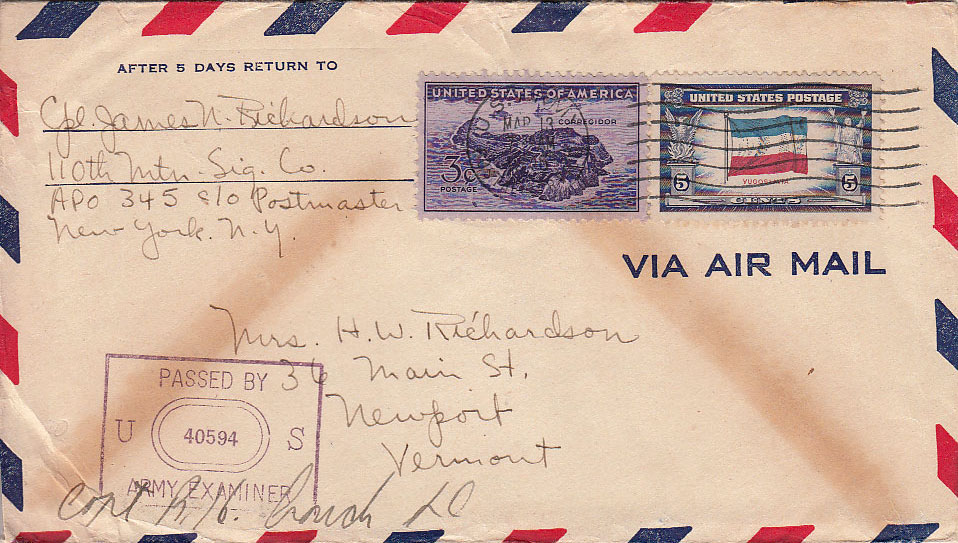 AFTER 5 DAYS RETURN TO
Cpl. James N. Richardson
110th Mtn. Sig. Co.
APO 345 c/o Postmaster
New York. N.Y.
UNITED STATES OF AMERICA
CORREGIDOR
3¢
POSTAGE
U.S.
MAR 13
UNITED STATES POSTAGE
YUGOSLAVIA
5 5
CENTS
VIA AIR MAIL
Mrs. H. W. Richardson
36 Main St.
Newport
Vermont
PASSED BY
U 40594 S
ARMY EXAMINER